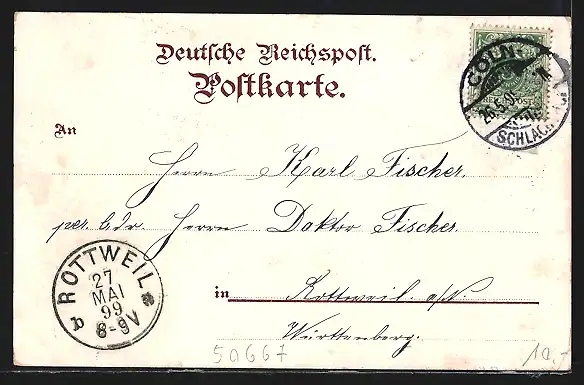 Deutsche Reichspost.
Postkarte.
CÖLN
SCHLACH
An
Herrn Karl Fischer.
per Adr. Herrn Doktor Fischer
in Rottweil a/N.
Württemberg.
ROTTWEIL
27
MAI
99
8-9V
b
50667
10,-